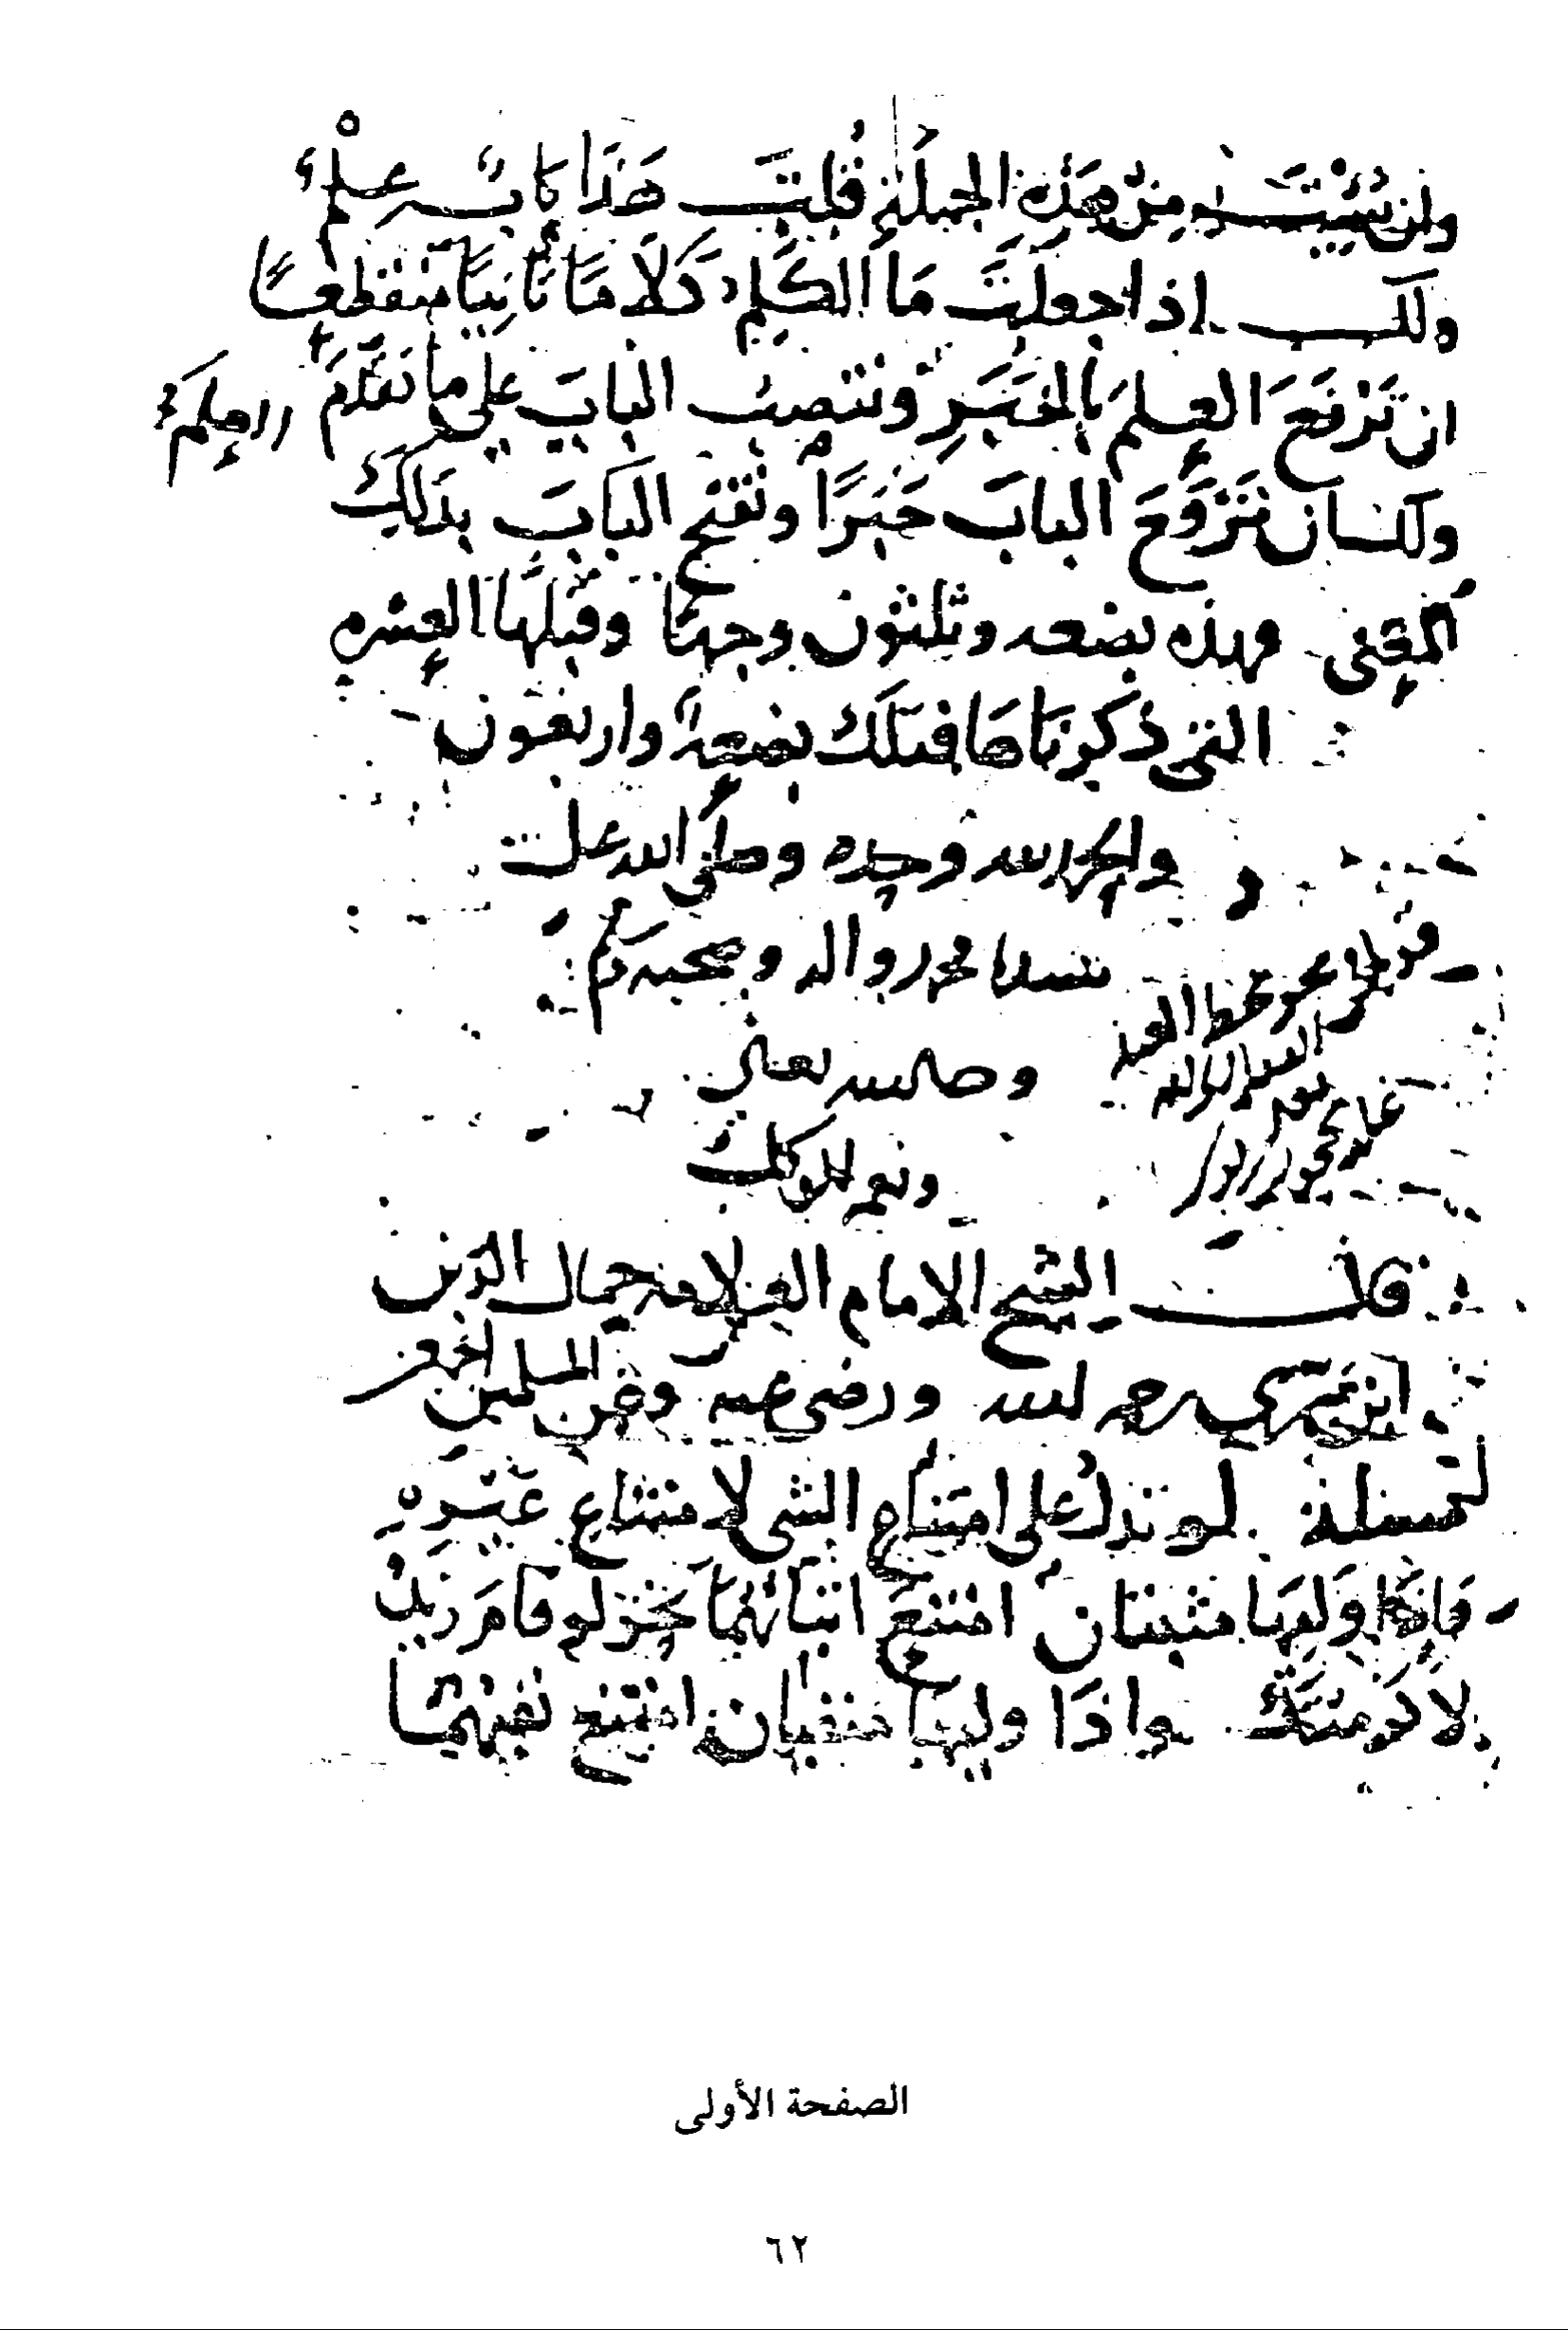 وان شئت من هذه الجملة قلت هذا باب علم
ولك اذا جعلت ما الكلم كلاما ثانيا منقطعا
ان ترفع العلم بالخبر وتنصب الباب على ما تقدم
ولك ان ترفع الباب خبرا وتفتح الباب بذلك
المعنى فهذه بضعه وثلثون وجها وقبلها العشره
التي ذكرناها فتلك بضعة واربعون
والحمد لله وحده وصلى الله على
سيدنا محمد واله وصحبه وسلم
وحسبنا الله تعالى
ونعم الوكيل
قال الشيخ الامام العلامه جمال الدين
ابن بري رحمه الله ورضي عنه وعن المسلمين اجمعين
مسئلة لو تدل على امتناع الشي لامتناع غيره
فاذا وليها مثبتان امتنع اثباتهما نحو لو قام زيد
لاكرمتك واذا وليها منفيان امتنع نفيهما
الصفحة الأولى
٦٢